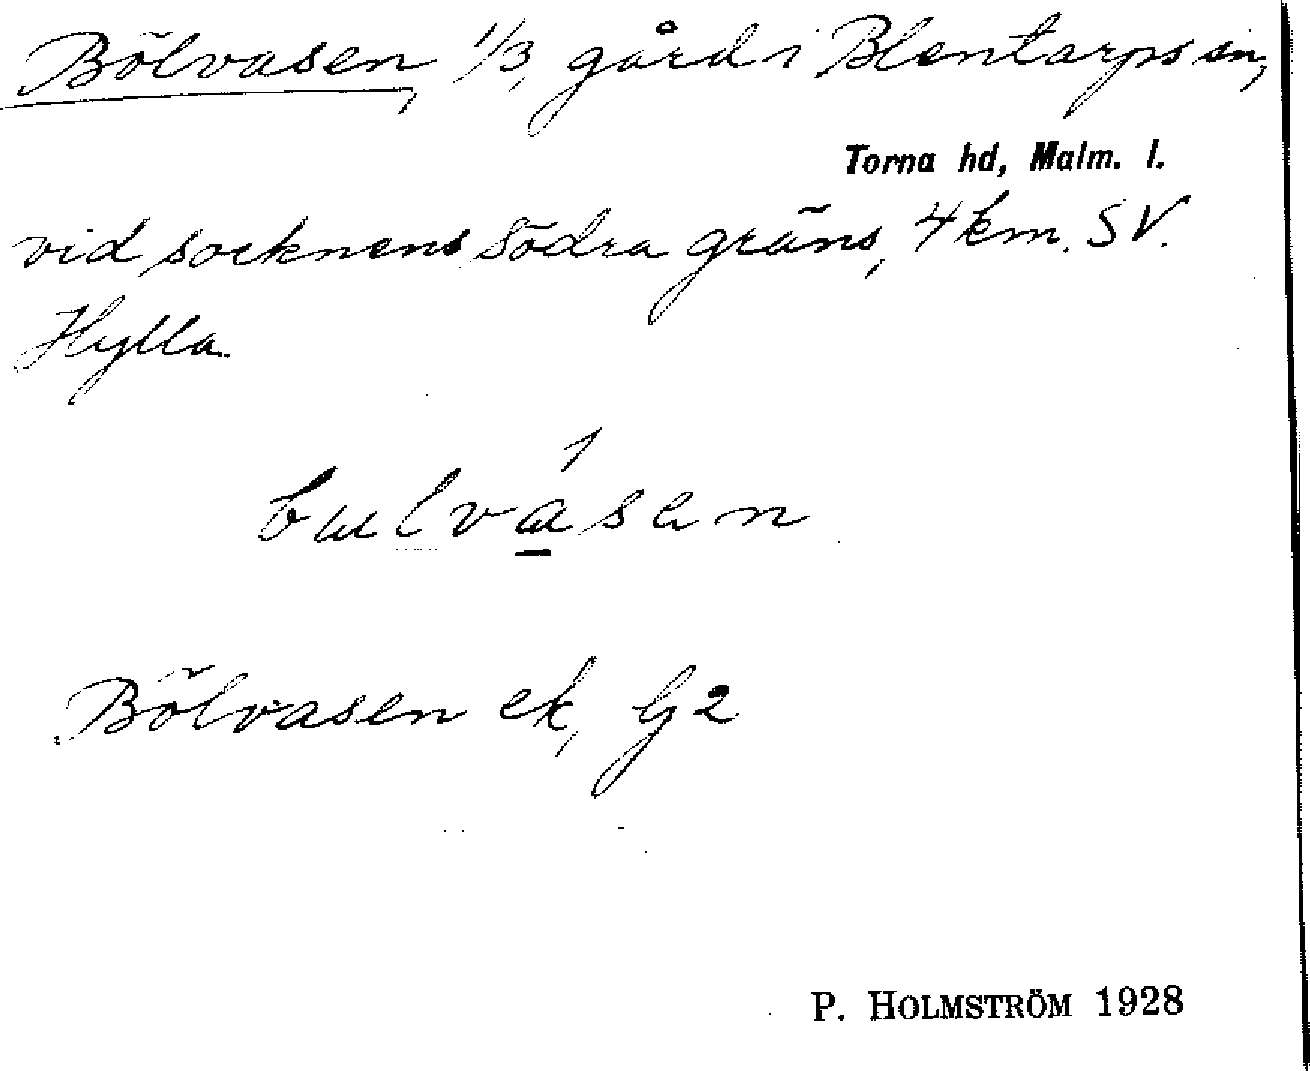 Bölvasen, 1/3, gård i Blentarps sn,
Torna hd, Malm. l.
vid socknens södra gräns, 4 km. SV.
Hylla.
bulvásen
Bölvasen ek, G2
P. HOLMSTRÖM 1928